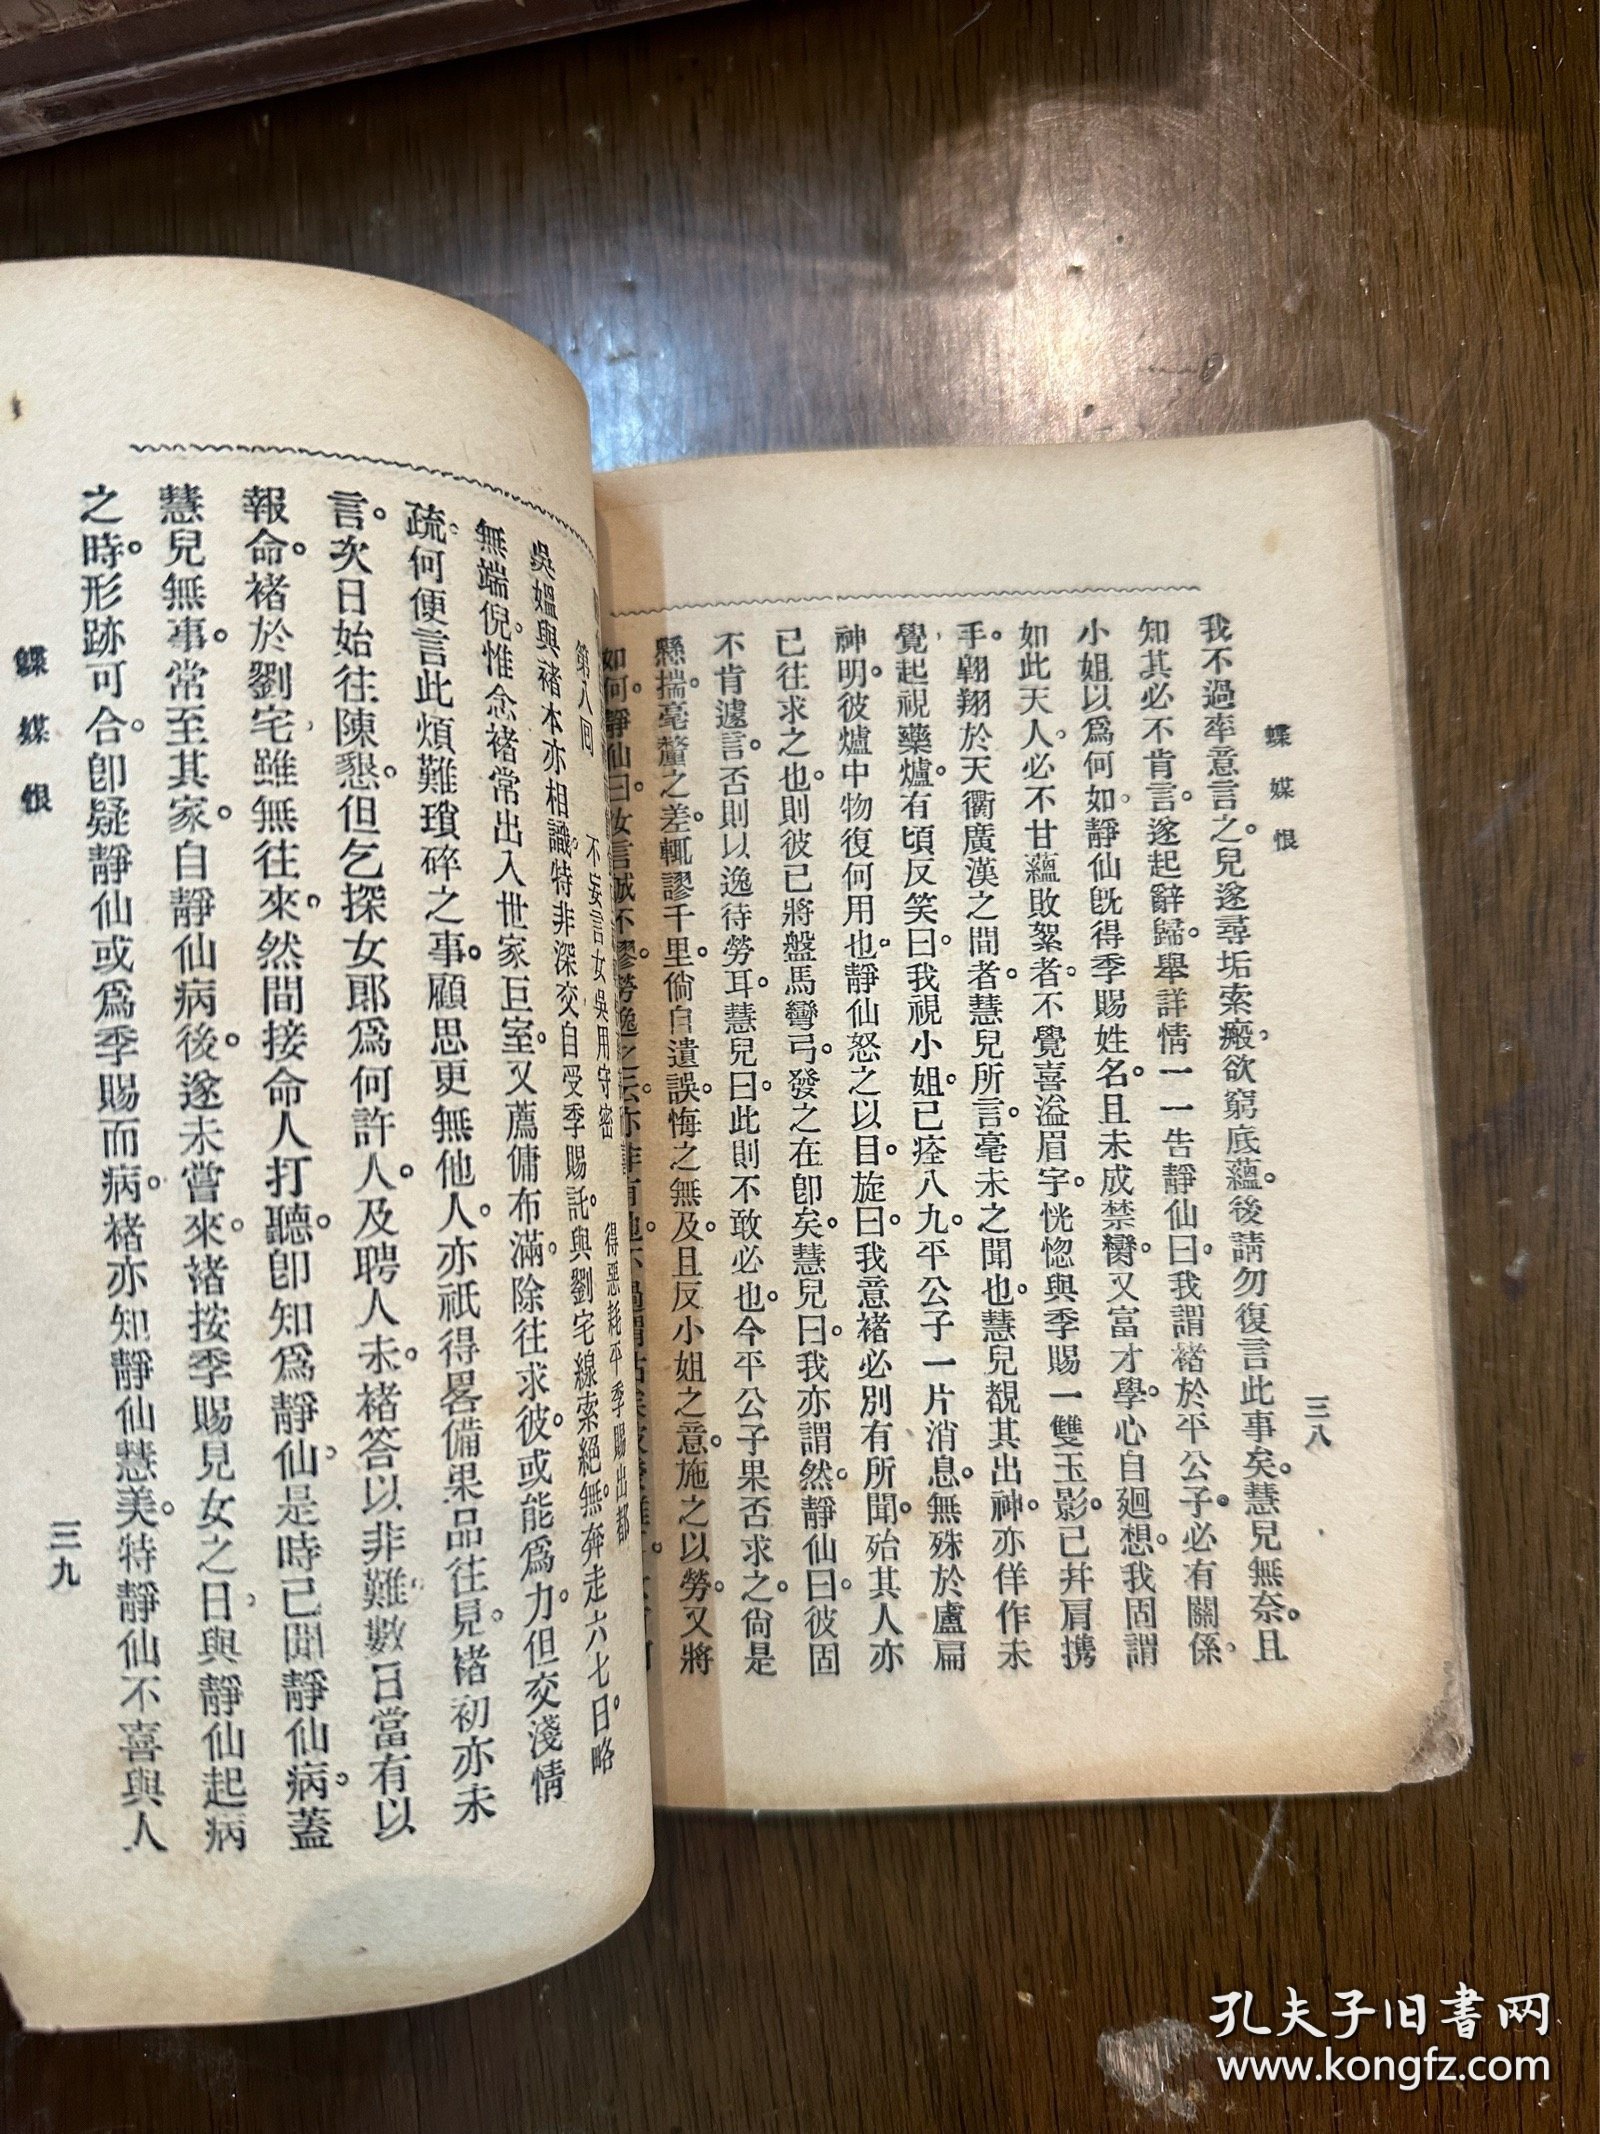 蝶媒恨
三八
我不過率意言之。兒遂尋垢索瘢、欲窮底蘊。後請勿復言此事矣。慧兒無奈。且
知其必不肯言。遂起辭歸。舉詳情一一告靜仙曰。我謂褚於平公子。必有關係、
小姐以爲何如。靜仙旣得季賜姓名。且未成禁臠。又富才學。心自廻想。我固謂
如此天人。必不甘蘊敗絮者。不覺喜溢眉宇。恍惚與季賜一雙玉影。已幷肩携
手。翱翔於天衢廣漢之間者。慧兒所言。毫未之聞也。慧兒覩其出神。亦佯作未
覺、起視藥爐。有頃反笑曰。我視小姐。已痊八九。平公子一片消息。無殊於盧扁
神明。彼爐中物復何用也。靜仙怒之以目。旋曰。我意褚必別有所聞。殆其人亦
已往求之也。則彼已將盤馬彎弓。發之在卽矣。慧兒曰。我亦謂然。靜仙曰。彼固
不肯遽言。否則以逸待勞耳。慧兒曰。此則不敢必也。今平公子果否求之。尙是
懸揣。毫釐之差。輒謬千里。倘自遺誤。悔之無及。且反小姐之意。施之以勞。又將
如何。靜仙曰。女言誠不謬。勞逸之云。亦非有他。不過謂
第八囘 不妄言女吳用守密 得惡耗平季賜出都
吳媼與褚本亦相識。特非深交。自受季賜託。與劉宅線索絕無。奔走六七日。略
無端倪。惟念褚常出入世家巨室。又薦傭布滿。除往求彼。或能爲力。但交淺情
疏。何便言此煩難瑣碎之事。顧思更無他人。亦祇得畧備果品往見。褚初亦未
言。次日始往陳懇。但乞探女郎爲何許人。及聘人未。褚答以非難、數日當有以
報命。褚於劉宅、雖無往來。然間接命人打聽。卽知爲靜仙、是時已聞靜仙病。蓋
慧兒無事。常至其家。自靜仙病後。遂未嘗來。渚按季賜見女之日、與靜仙起病
之時。形跡可合。卽疑靜仙或爲季賜而病。褚亦知靜仙慧美。特靜仙不喜與人
蝶媒恨
三九
孔夫子旧书网
www.kongfz.com